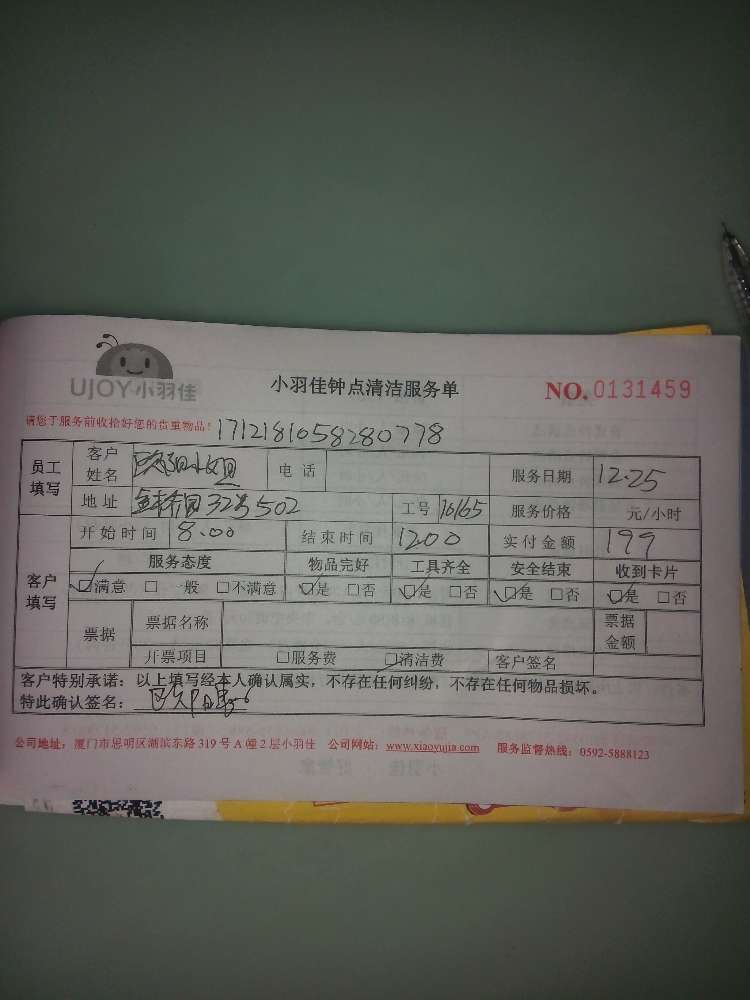 UJOY小羽佳
小羽佳钟点清洁服务单
NO. 0131459
请您于服务前收拾好您的贵重物品! 1712181058280778
员工填写 客户姓名 欧阳小姐 电话 服务日期 12.25
地址 32号502 工号 16165 服务价格 元/小时
客户填写 开始时间 8.00 结束时间 1200 实付金额 199
服务态度 物品完好 工具齐全 安全结束 收到卡片
☑满意 □一般 □不满意 ☑是 □否 ☑是 □否 ☑是 □否 ☑是 □否
票据 票据名称 票据金额
开票项目 □服务费 □清洁费 客户签名
客户特别承诺：以上填写经本人确认属实，不存在任何纠纷，不存在任何物品损坏。
特此确认签名： 欧阳
公司地址：厦门市思明区湖滨东路319号A幢2层小羽佳 公司网站：www.xiaoyujia.com 服务监督热线：0592-5888123